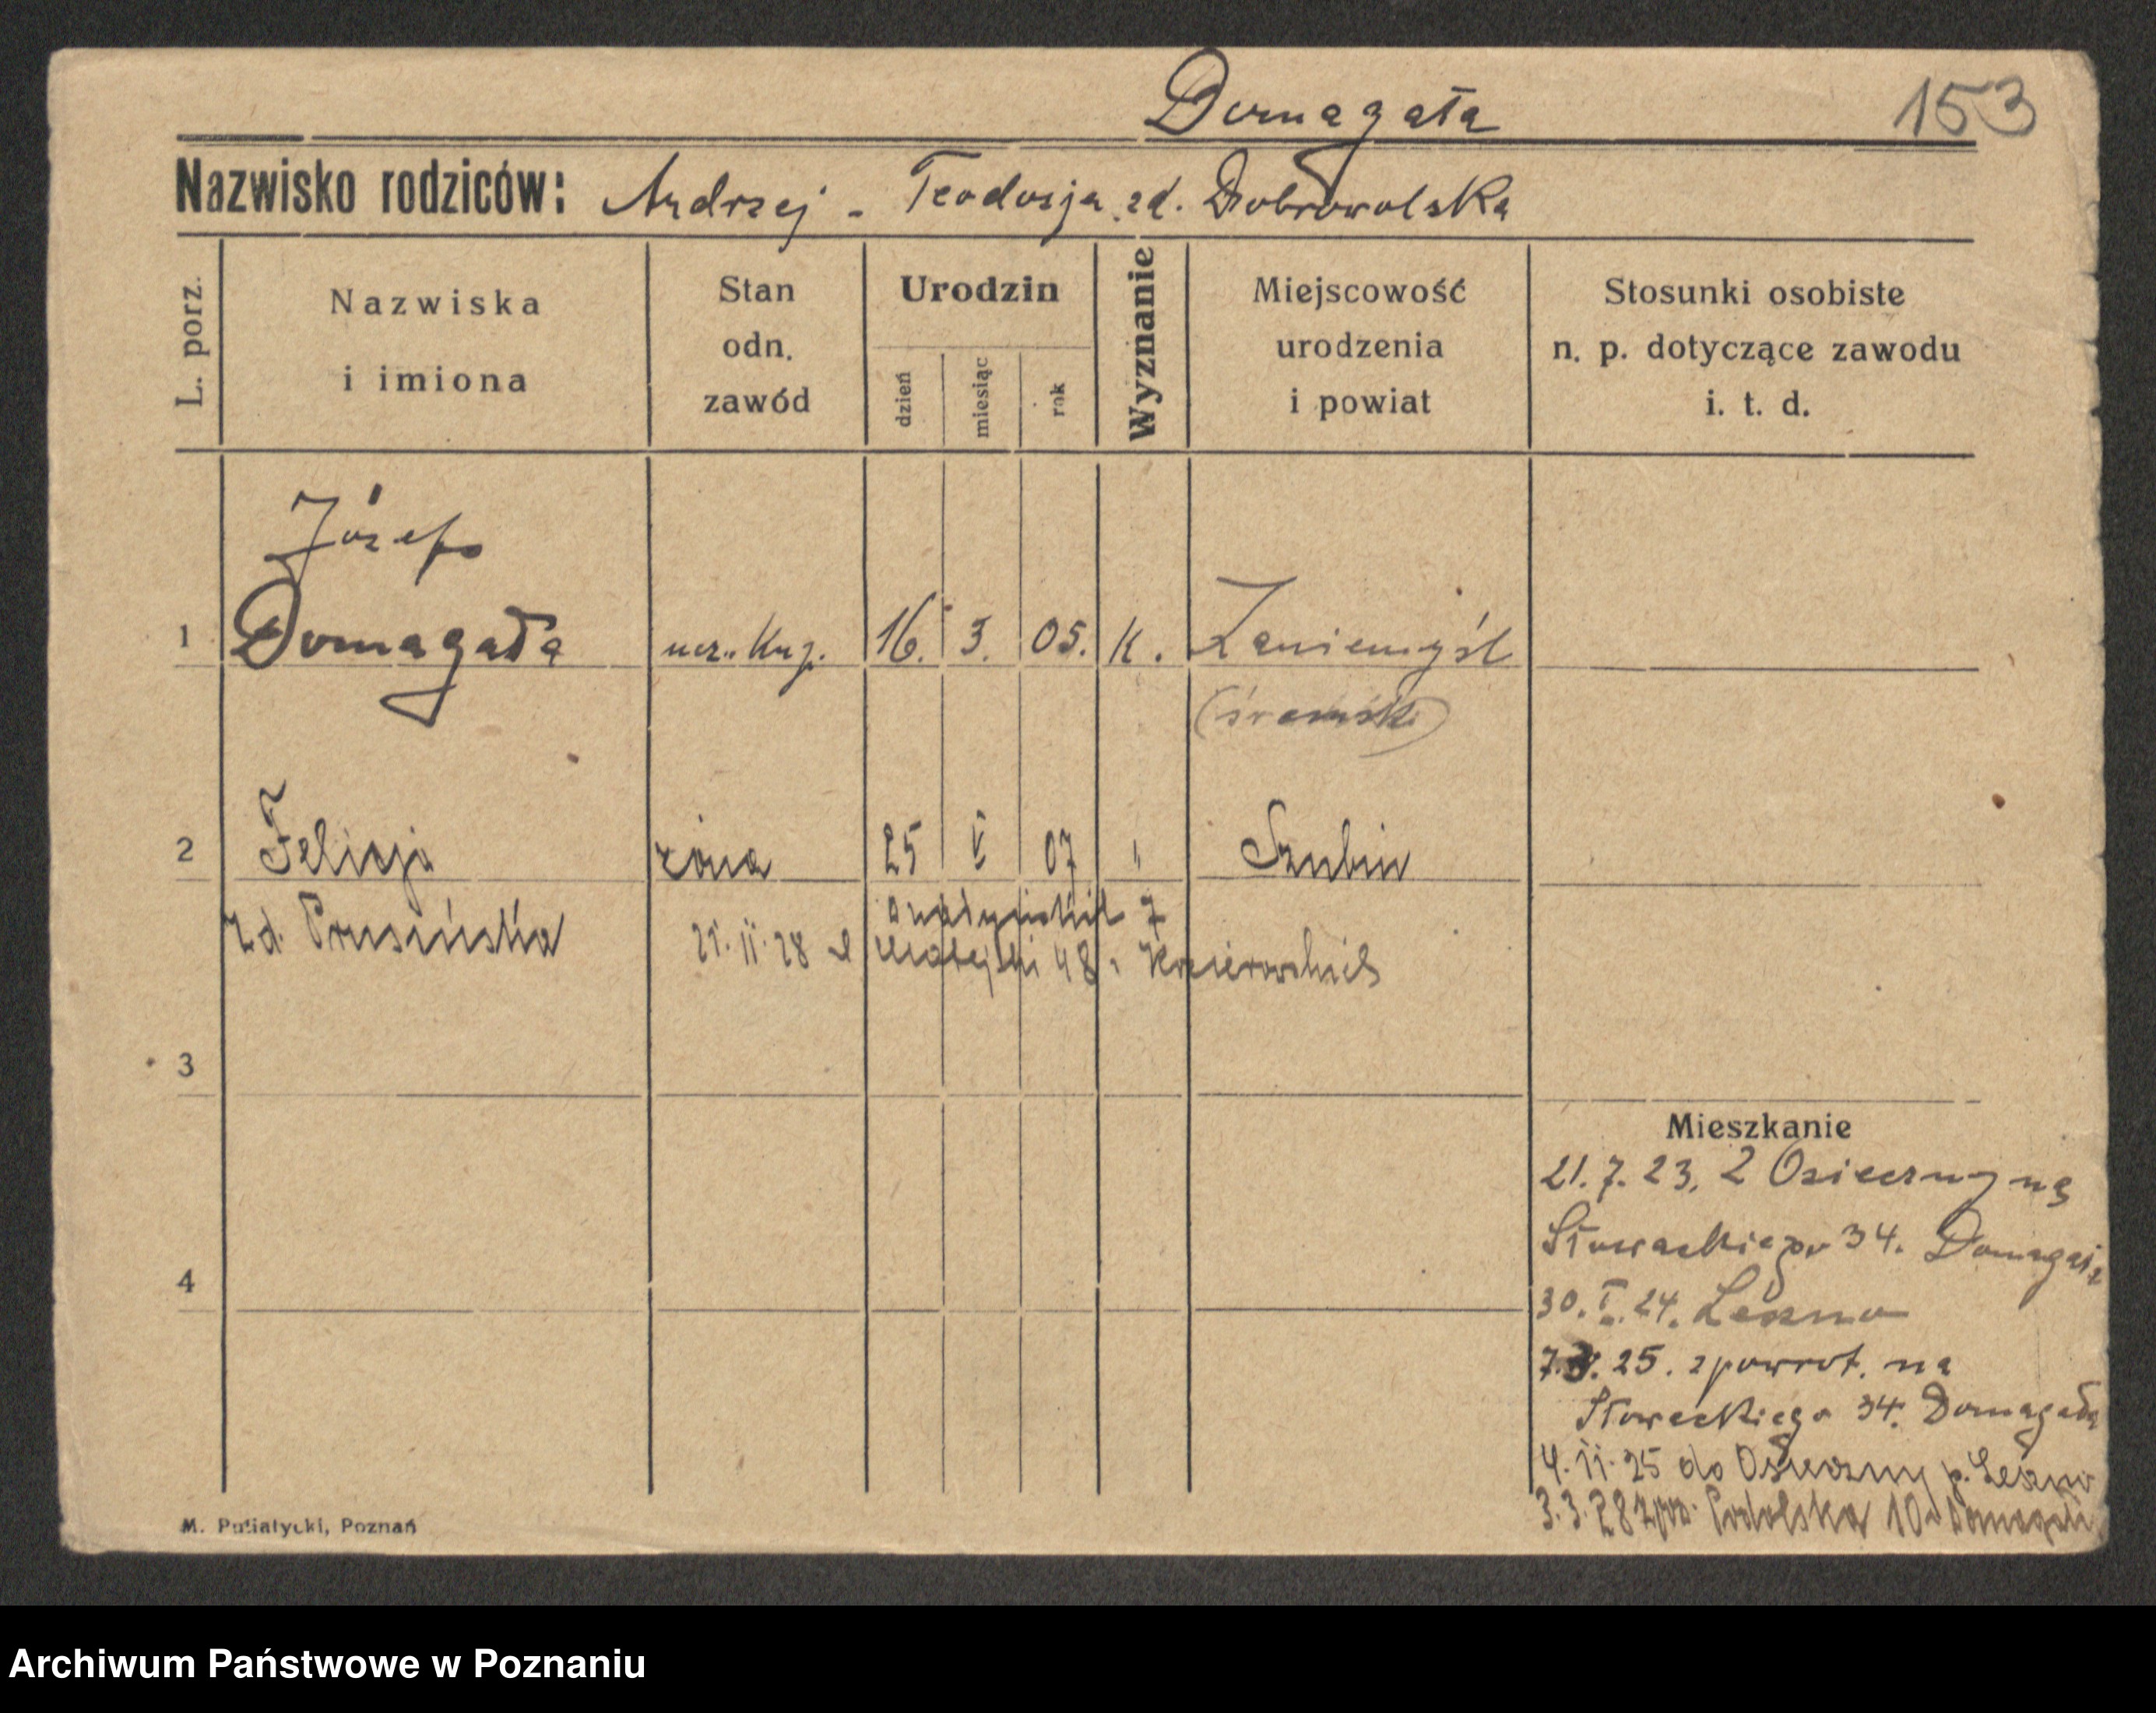 Domagała
153
Nazwisko rodziców: Andrzej - Teodozja zd. Dobrowolska
L. porz.
Nazwiska
i imiona
Stan
odn.
zawód
Urodzin
dzień
miesiąc
rok
Wyznanie
Miejscowość
urodzenia
i powiat
Stosunki osobiste
n. p. dotyczące zawodu
i. t. d.
Józef
1 Domagała ucz. 16. 3. 05. K. Zaniemyśl
(śremski)
2 Felicja żona 25 V 07 " Szubin
zd. Prusińska
7
21.II.28 Matejki 48
3
Mieszkanie
21.7.23. z Osieczny na
Słowackiego 34. Domagała
4
30.I.24. Leszno
25. zpowrot. na
Słowackiego 34. Domagała
4.II.25 do Osieczny p. Leszno
3.3.28 Podolska 10
M. Putiatycki, Poznań
Archiwum Państwowe w Poznaniu